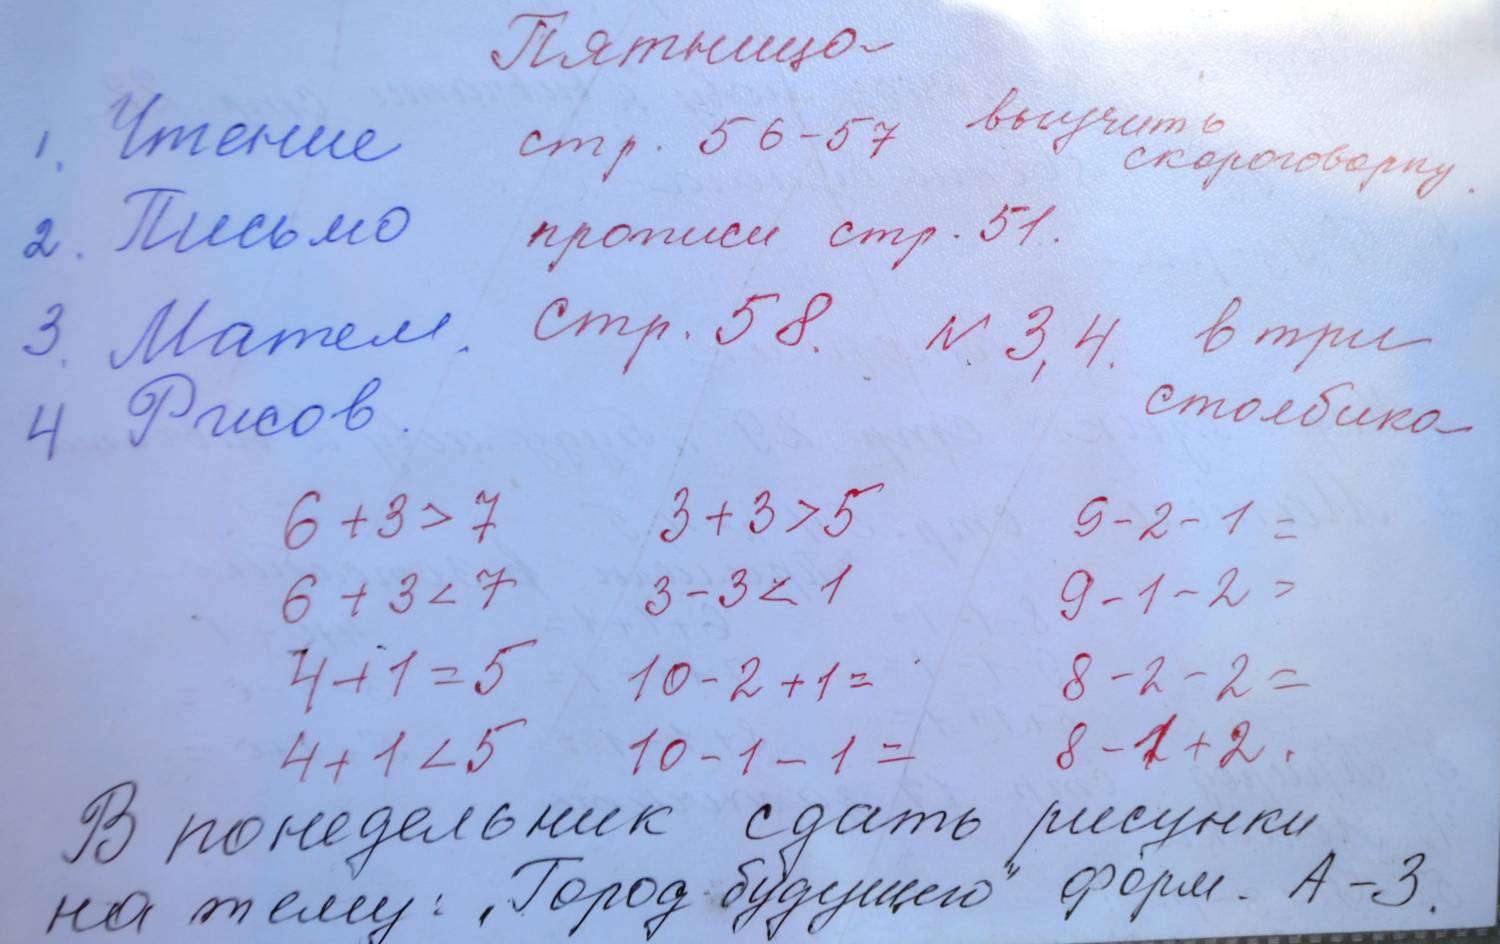 Пятница
1. Чтение стр. 56-57 выучить
скороговорку.
2. Письмо прописи стр. 51.
3. Матем. стр. 58. N 3, 4. в три
столбика
4 Рисов.
6+3>7 3+3>5 9-2-1=
6+3<7 3-3<1 9-1-2=
4+1=5 10-2+1= 8-2-2=
4+1<5 10-1-1= 8-1+2.
В понедельник сдать рисунки
на тему: „Город будущего" форм. А-3.